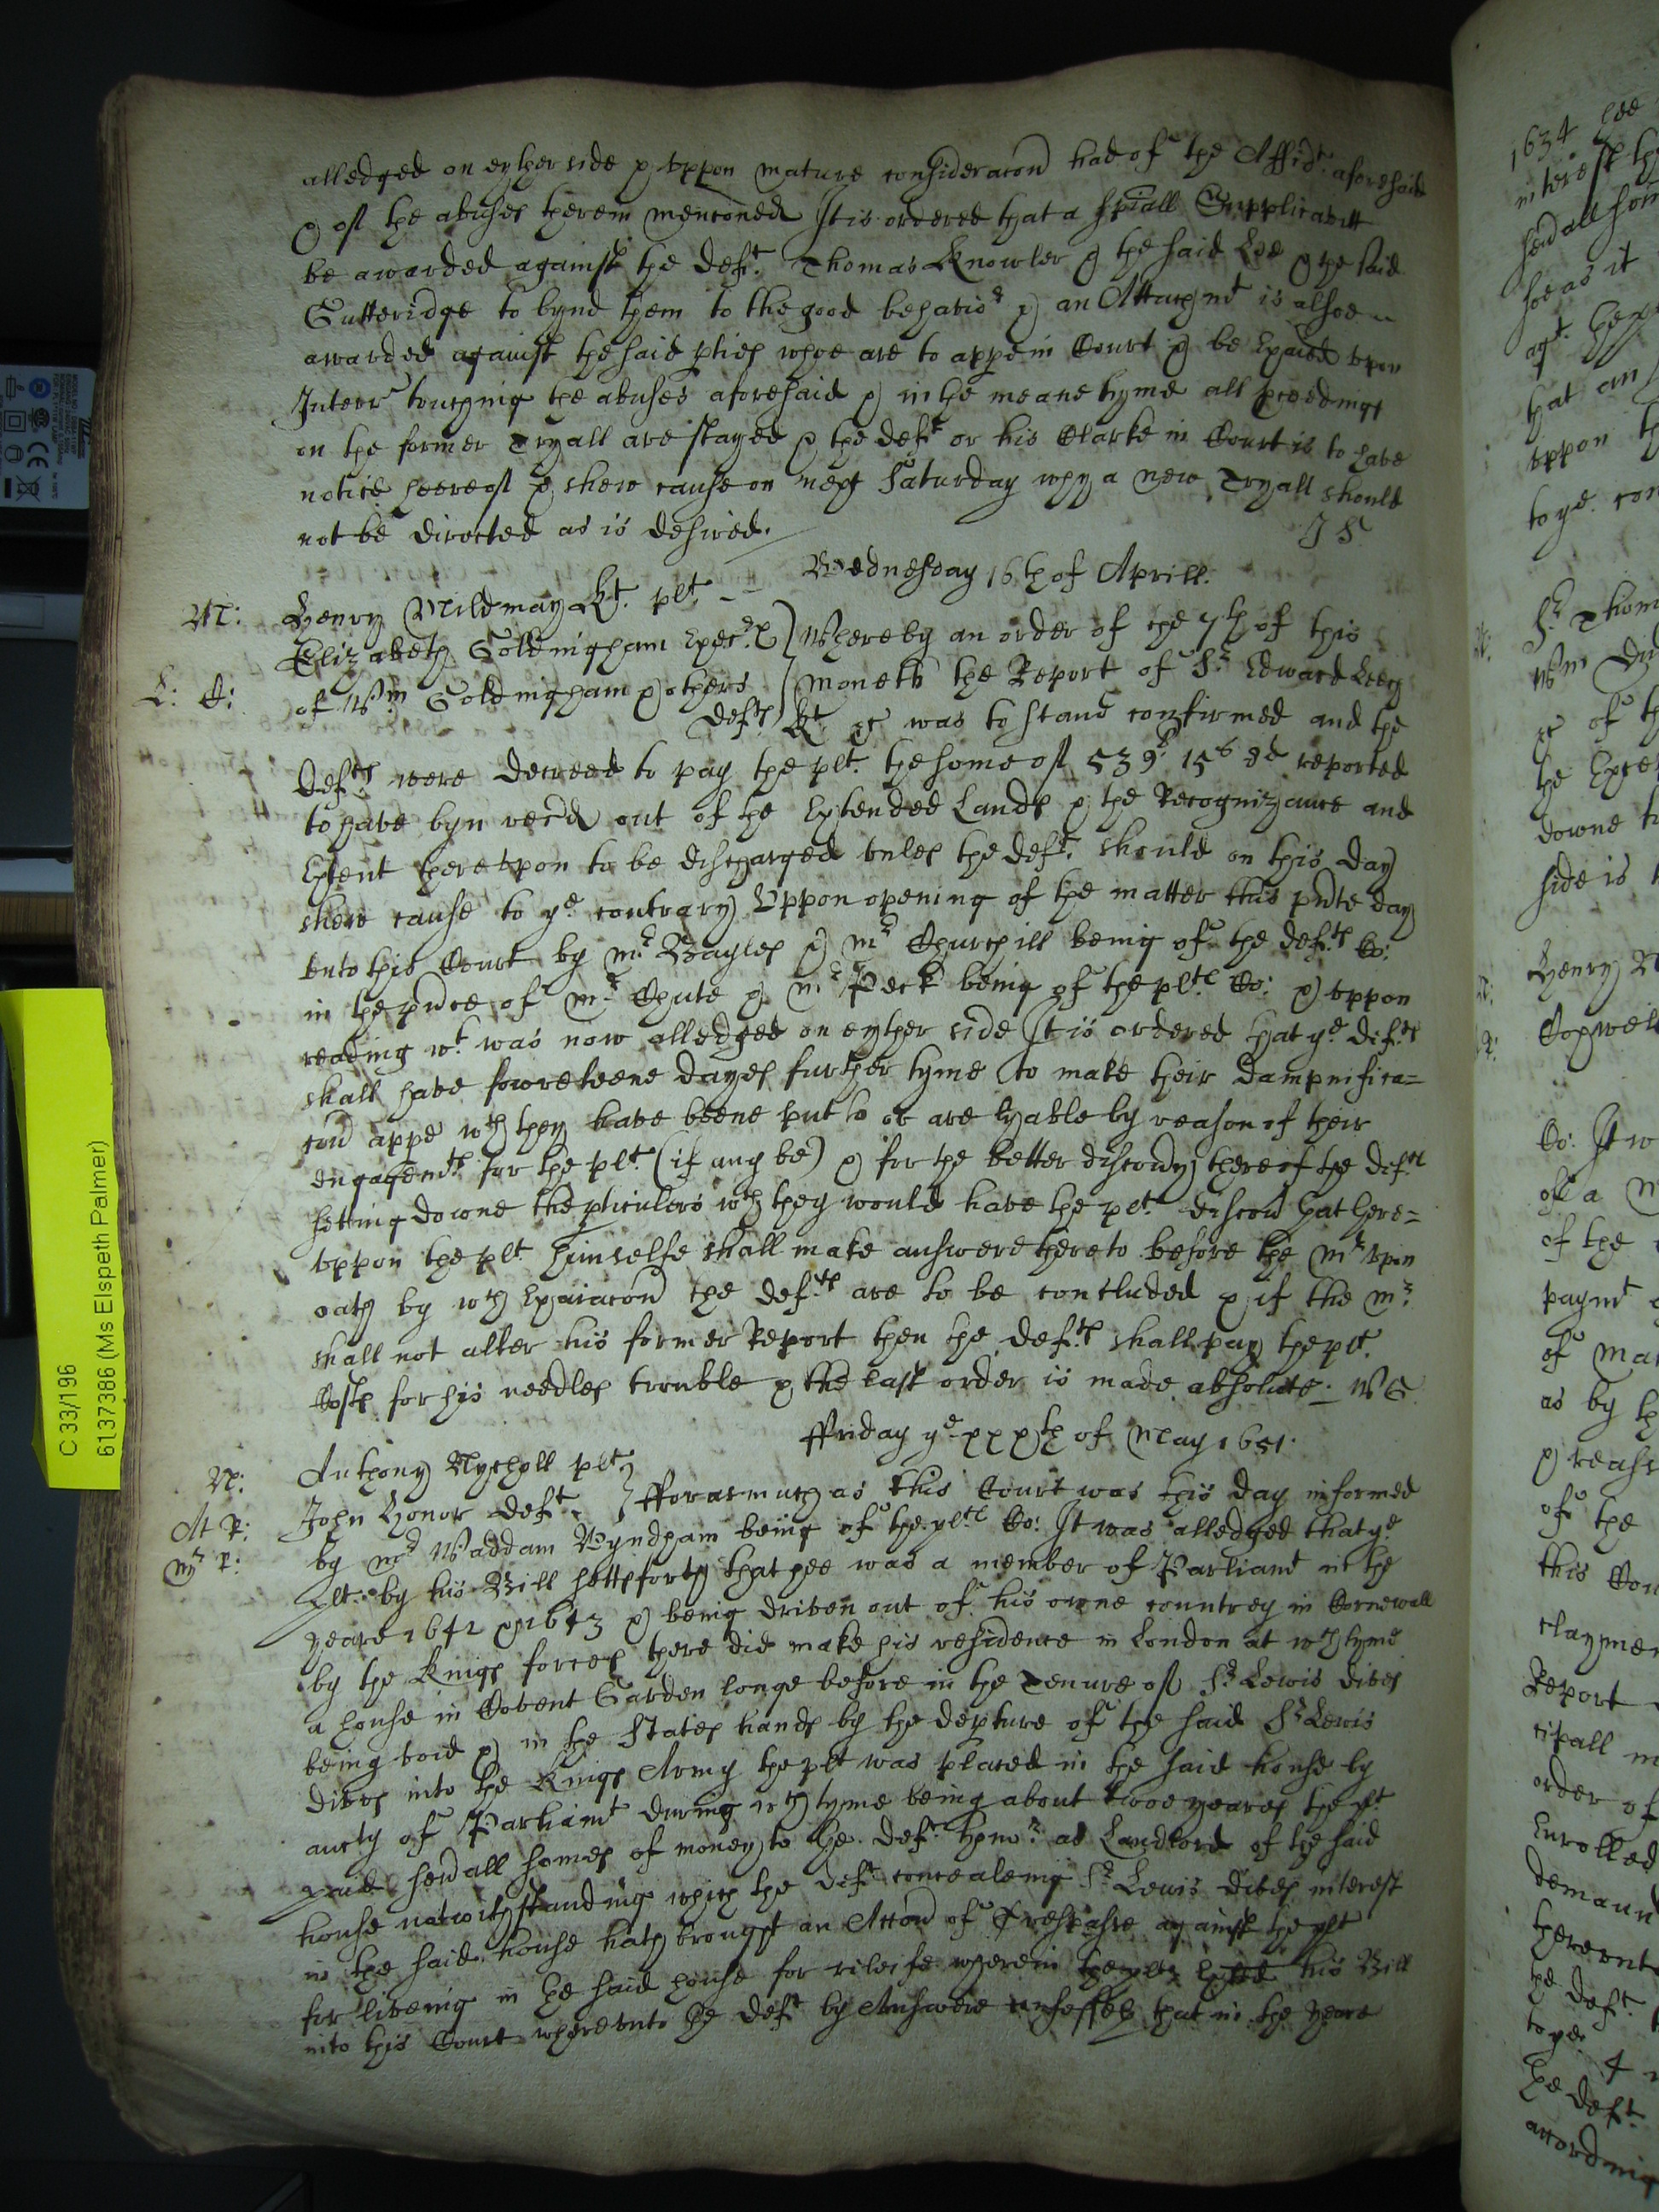 alledged on eyther side & uppon mature consideracon had of the Affidt. aforesaid
& of the abuses therein menconed It is ordered that a spiall Supplicavitt
be awarded against the deft. Thomas Knowler & the said Lee & the said
Gutteridge to bynd them to the good behavior & an Attachmt is alsoe
awarded against the said pties whoe are to appe in Court & be Exaied upon
Interr touching the abuses aforesaid & in the meane tyme all proceedings
on the former Tryall are stayed & the deft or his Clarke in Court is to have
notice heereof & shew cause on next Saturday why a new Tryall should
not be directed as is desired.
J S
Wednesday 16th of Aprill.
M: Henry Mildmay Kt. plt.
Elizabeth Goldingham Execr. } Whereby an order of the 7th of this
L: C: of Wm Goldingham & others moneth the Report of Sr Edward Leech
defts Kt &c was to stand confirmed and the
defts were decreed to pay the plt. the some of 539l 15s 8d reported
to have byn recd out of the Extended Lands & the Recognizance and
Extent thereupon to be discharged unles the deft. should on this day
shew cause to ye contrary Uppon opening of the matter this pnte day
unto this Court by mr. Bayles & mr Churchill being of the defts Co:
in the pnce of mr Chute & mr Peck being of the plts Co: & uppon
reading wt was now alledged on eyther side It is ordered that ye defts
shall have fowreteene dayes further tyme to make their dampnifica=
con appe wch they have beene put to or are lyable by reason of their
engagemts for the plt. (if any be) & for the better discovy thereof the defts
setting downe the pticulers wch they would have the plt. discov that there=
uppon the plt himselfe shall make answere thereto before the mr upon
oath by wch Exaiacon the defts are to be concluded & if the mr
shall not alter his former Report then the defts shall pay the plt.
Costs for his needles trouble & the last order is made absolute. W G
ffriday ye xxxth of May 1651.
N: Anthony Nycholl plt
John Honor deft. } fforasmuch as this Court was this day informed
At P: by mr Waddam Wyndham being of the plts Co: It was alledged that ye
mr P: plt. by his Bill setts forth that hee was a member of Parliamt in the
yeare 1642 & 1643 & being driven out of his owne countrey in Cornewall
by the Kings forces there did make his residence in London at wch tyme
a house in Covent Garden longe before in the Tenure of Sr Lewis dives
being void & in the States hands by the depture of the said Sr Lewis
dives into the Kings Army the plt was placed in the said house by
aucty of Parliamt during wch tyme being about twoe yeares the plt
paid sevall somes of money to the deft. as Landlord of the said
house notwithstanding which the deft concealeing Sr Lewis dives interest
in the said house hath brought an Accon of Trespasse against the plt
for liveing in the said house for releife wherein the plt his Bill
into this Court whereunto the deft by Answere that in the yeare
C 33/196
6137386 (Ms Elspeth Palmer)
1634 hee
interest th
sevall som
soe as it
agt.
that an
uppon th
to ye. con
Sr. Thom
Wm
&c of th
the Excep
downe to
side is
Henry M
Co: It w
of a m
of the
paymt
of ma
as by th
& reas
of the
this Cou
clayme
Report
cipall m
order of
Enrolled
demand
thereunto
the deft.
to ye.
the deft.
according